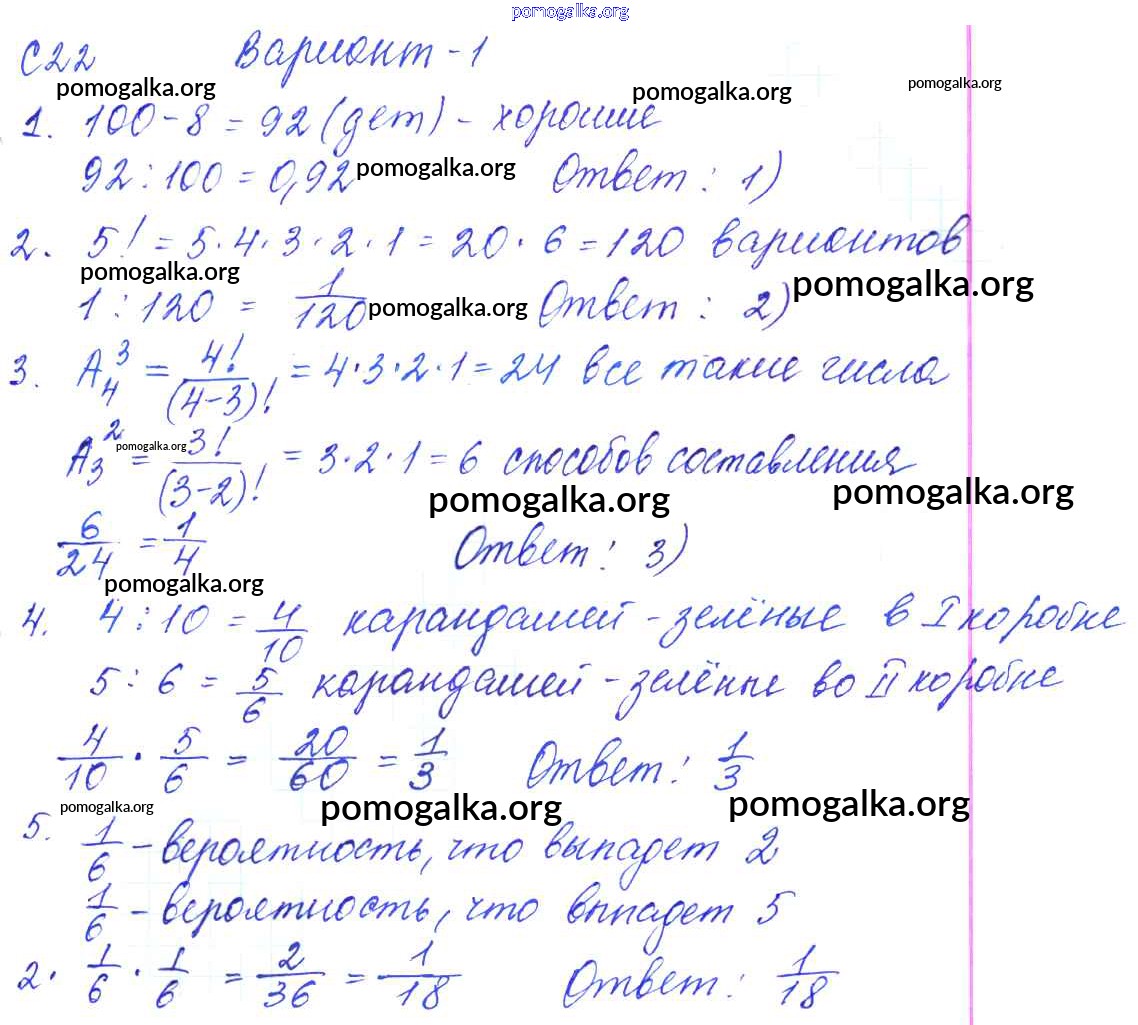 pomogalka.org
С22 Вариант-1
pomogalka.org pomogalka.org pomogalka.org
1. 100-8=92(дет)- хорошие
92:100=0,92 pomogalka.org Ответ: 1)
2. 5! = 5·4·3·2·1=20·6=120 вариантов
pomogalka.org
1:120 = 1/120 pomogalka.org Ответ: 2) pomogalka.org
3. A₄³ = 4!/(4-3)! = 4·3·2·1=24 все такие числа
A₃² pomogalka.org = 3!/(3-2)! = 3·2·1=6 способов составления
pomogalka.org pomogalka.org
6/24 = 1/4 Ответ: 3)
pomogalka.org
4. 4:10 = 4/10 карандашей-зелёные в I коробке
5:6 = 5/6 карандашей-зелёные во II коробке
4/10 · 5/6 = 20/60 = 1/3 Ответ: 1/3
pomogalka.org pomogalka.org pomogalka.org
5. 1/6 -вероятность, что выпадет 2
1/6 -вероятность, что выпадет 5
2· 1/6 · 1/6 = 2/36 = 1/18 Ответ: 1/18